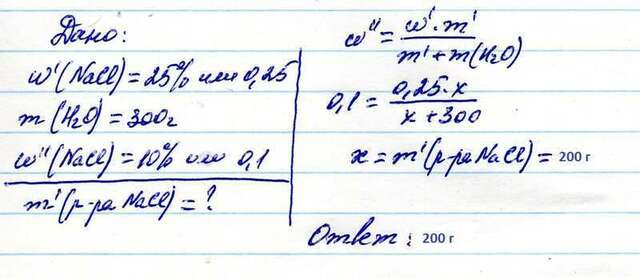 Дано:
w'(NaCl) = 25% или 0,25
m(H₂O) = 300г
w''(NaCl) = 10% или 0,1
m'(р-ра NaCl) = ?
w'' = w'·m' / m'+m(H₂O)
0,1 = 0,25·x / x+300
x = m'(р-ра NaCl) = 200 г
Ответ: 200 г